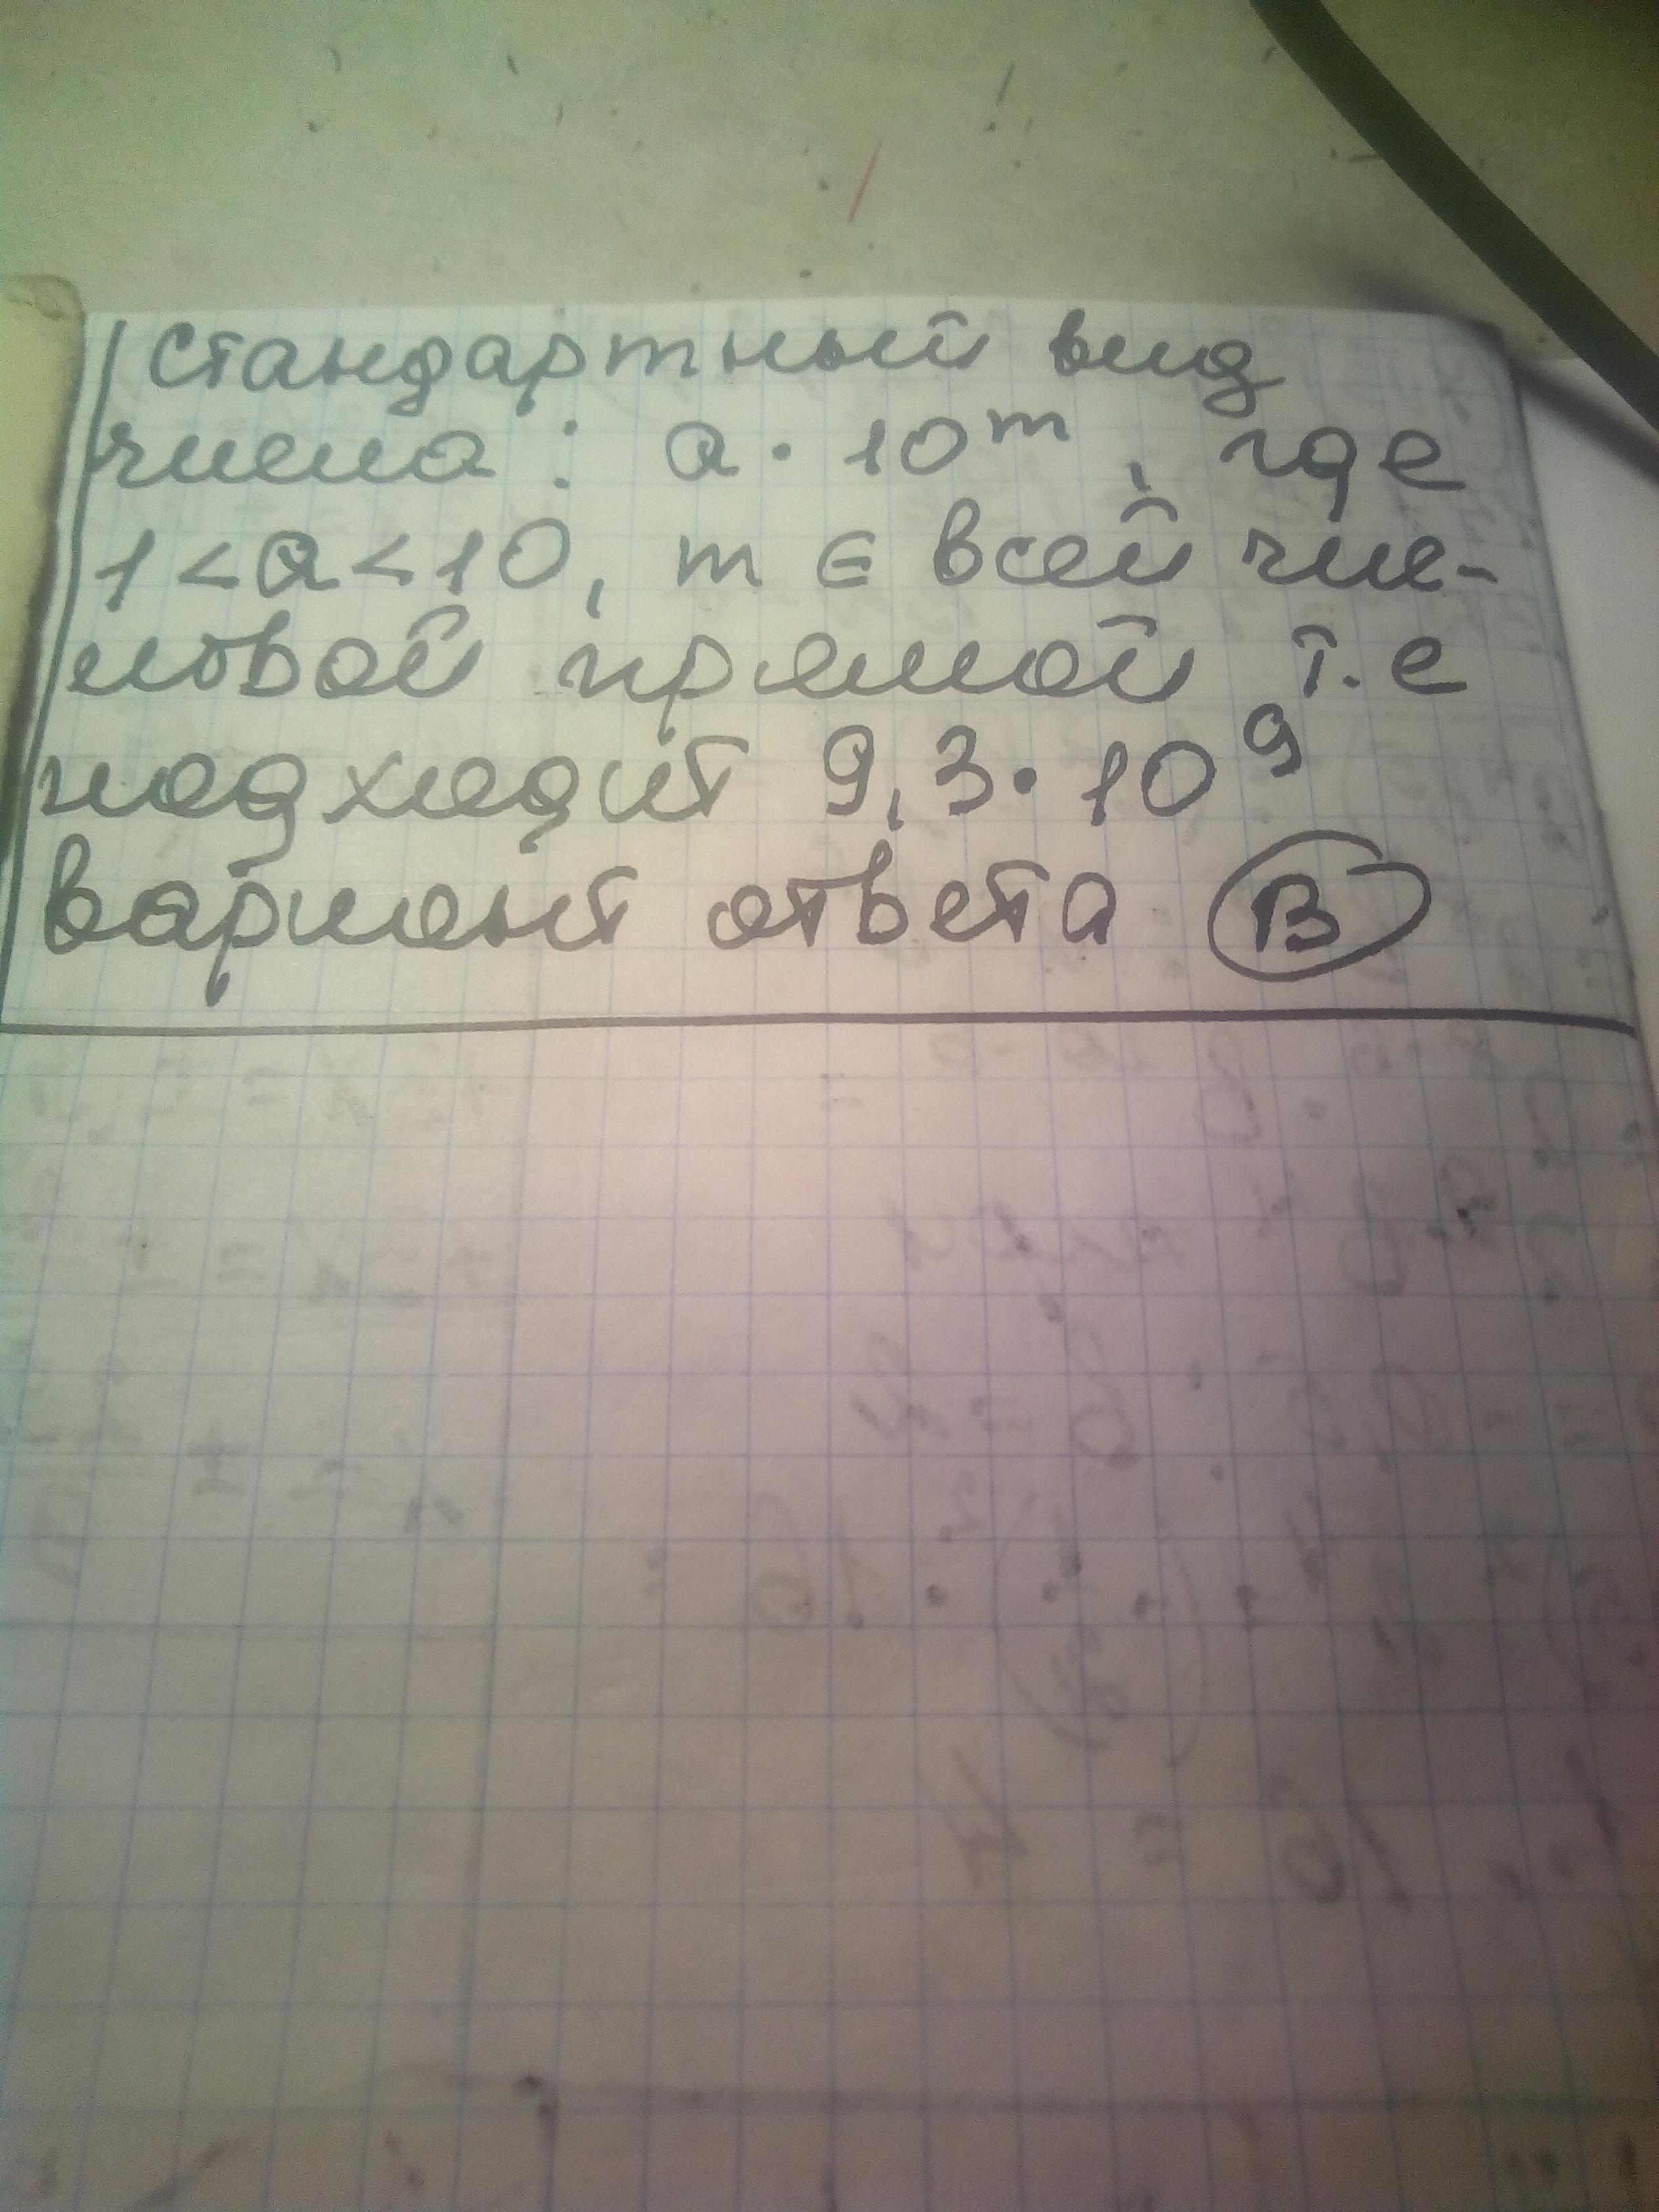 Стандартный вид
числа : a · 10^m , где
1 < a < 10, m ∈ всей чис-
ловой прямой т.е
подходит 9,3 · 10^9
вариант ответа В